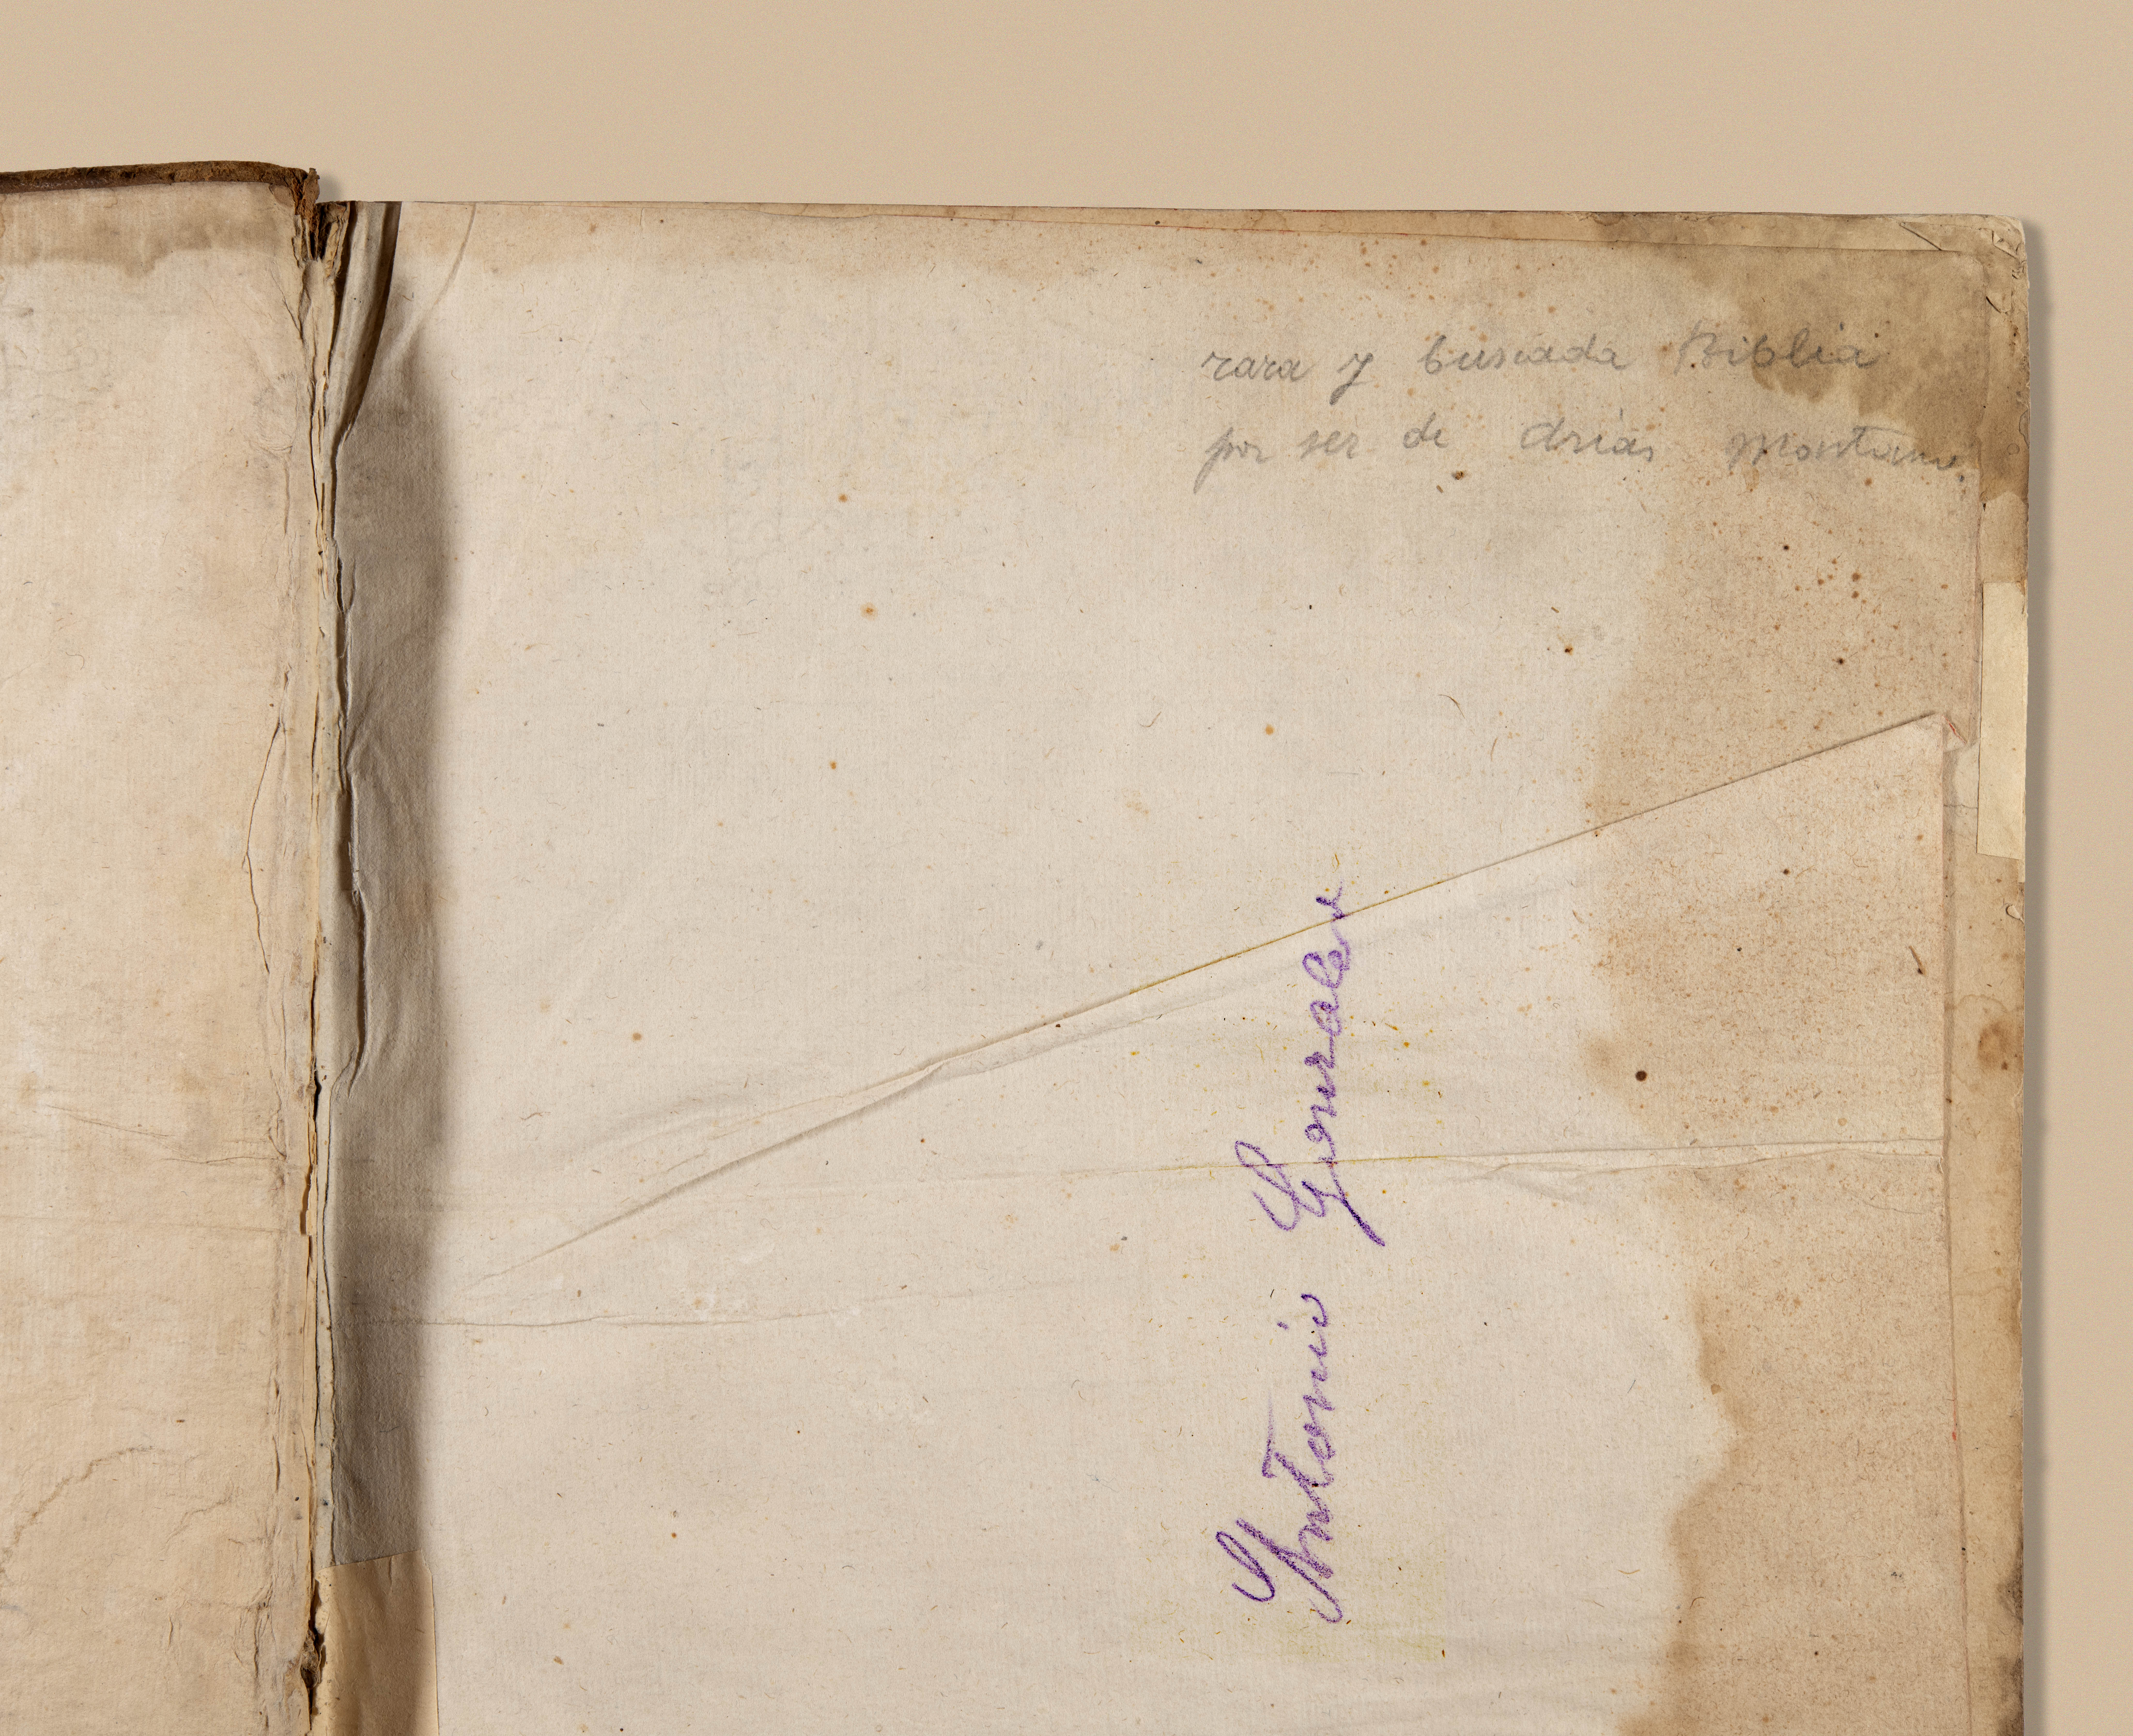 rara y buscada Biblia
por ser de Arias Montano.
Antonio Gonzalez